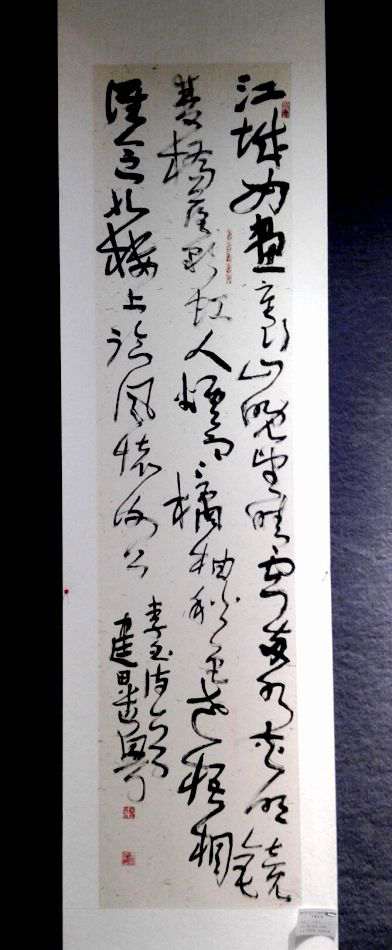 江城如畫裏山晚望晴空兩水夾明鏡
雙橋落彩虹人煙寒橘柚秋色老梧桐
誰念北樓上臨風懷謝公
李白詩